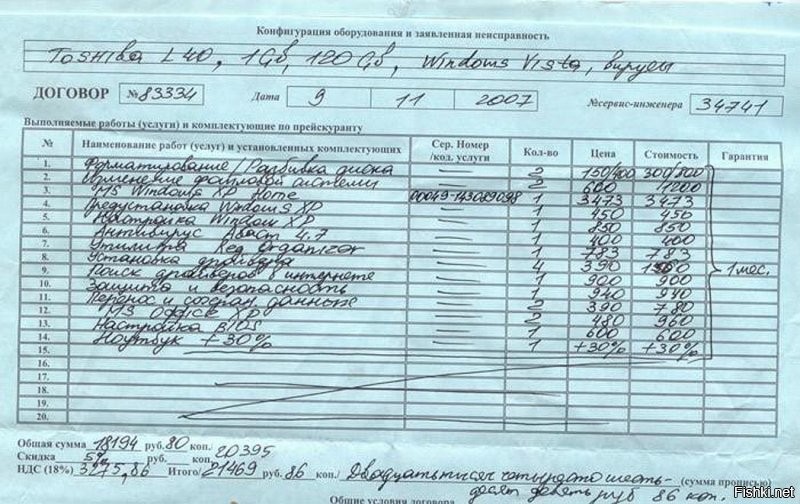 Конфигурация оборудования и заявленная неисправность
Toshiba L40, 1Gb, 120Gb, Windows Vista, вирусы
ДОГОВОР №83334 Дата 9 11 2007 №сервис-инженера 34741
Выполняемые работы (услуги) и комплектующие по прейскуранту
№ Наименование работ (услуг) и установленных комплектующих Сер. Номер /код. услуги Кол-во Цена Стоимость Гарантия
1. Форматирование/Разбивка диска — 2 150/400 300/800
2. Изменение файловой системы — 2 600 1200
3. MS Windows XP Home 00049-143089098 1 3473 3473
4. Предустановка Windows XP — 1 450 450
5. Настройка Window XP — 1 850 850
6. Антивирус Аваст 4.7 — 1 400 400
7. Утилита Reg Organizer — 1 783 783
8. Установка драйвера — 4 390
9. Поиск драйверов в интернете — 1 900 900 1 мес.
10. Защита и безопасность — 1 940 940
11. Перенос и сохран. данных — 2 390 780
12. MS Office XP — 2 480 960
13. Настройка BIOS — 1 600 600
14. Ноутбук +30% — 1 +30% +30%
15.
16.
17.
18.
19.
20.
Общая сумма 18194 руб. 80 коп.
Скидка 5% руб. коп. 20395
НДС (18%) 3275,86 Итого/ 21469 руб. 86 коп./ Двадцать тысяч четыреста шесть- (сумма прописью)
десят девять руб 86 коп.
Общие условия договора
Fishki.net